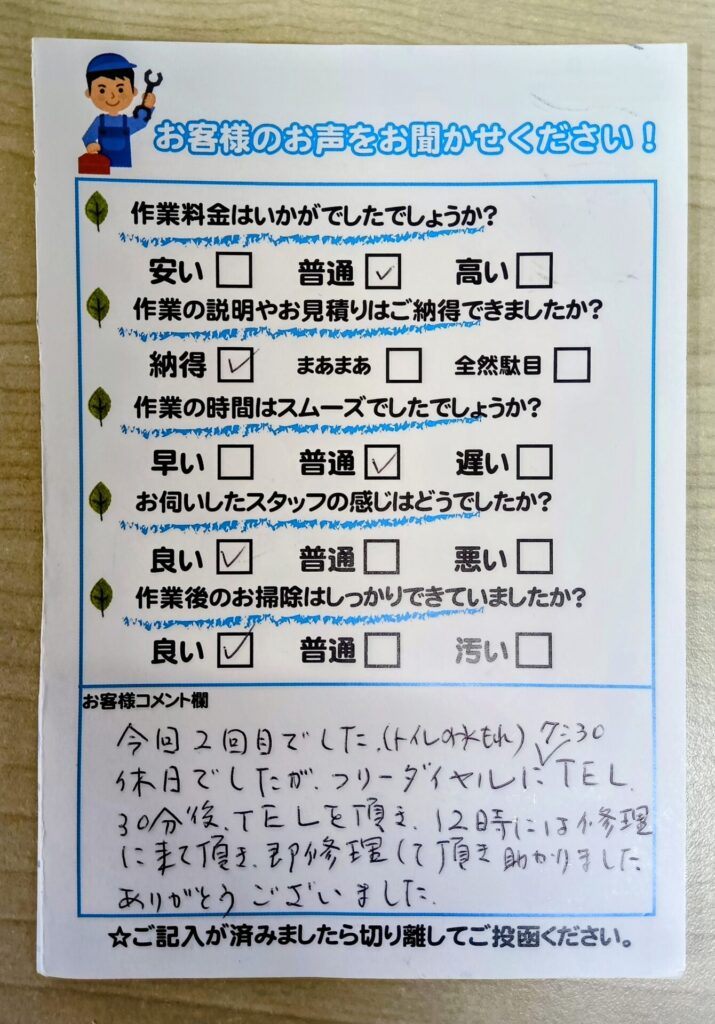 お客様のお声をお聞かせください！
作業料金はいかがでしたでしょうか?
安い□ 普通☑ 高い□
作業の説明やお見積りはご納得できましたか?
納得☑ まあまあ□ 全然駄目□
作業の時間はスムーズでしたでしょうか?
早い□ 普通☑ 遅い□
お伺いしたスタッフの感じはどうでしたか?
良い☑ 普通□ 悪い□
作業後のお掃除はしっかりできていましたか?
良い☑ 普通□ 汚い□
お客様コメント欄
今回2回目でした.(トイレの水もれ) 7:30
休日でしたが、フリーダイヤルにTEL.
30分後、TELを頂き、12時には修理
に来て頂き、即修理して頂き助かりました
ありがとうございました.
☆ご記入が済みましたら切り離してご投函ください。